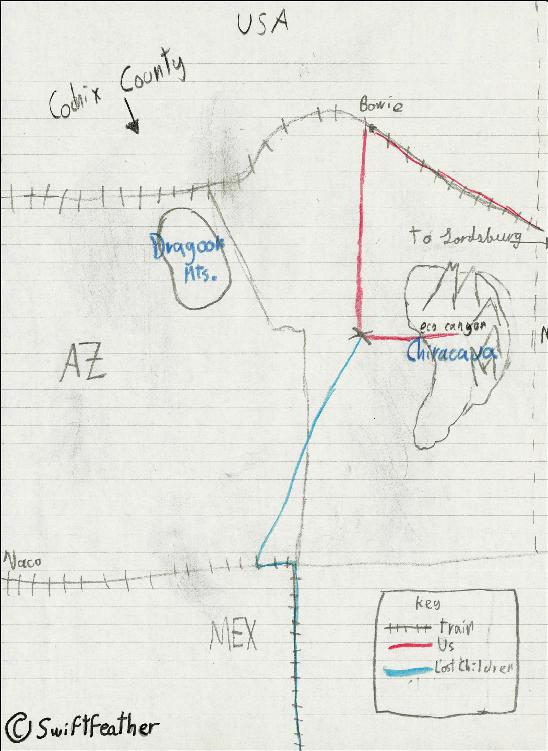 USA
Cochix County
Bowie
To Lordsburg
Dragook
Mts.
eco canyon
Chiracaua
N
AZ
Naco
MEX
key
train
Us
Lost Children
© Swiftfeather